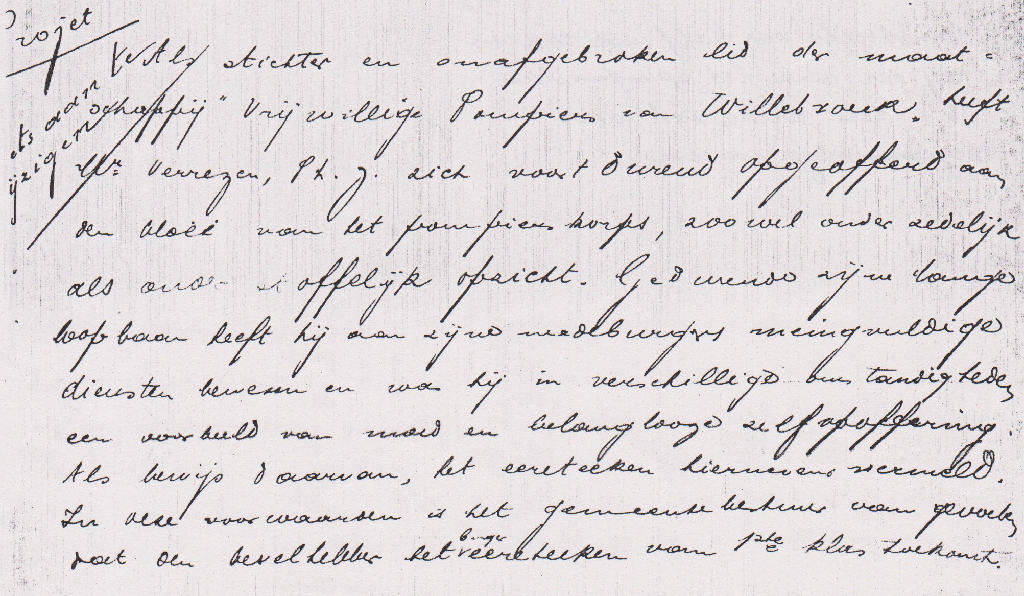 rojet
Als stichter en onafgebroken lid der maat-
schappij "Vrijwillige Pompiers van Willebroeck" heeft
Mr Verrezen, Ph. J. zich voortdurend opgeofferd aan
den bloei van het pompierskorps, zoowel onder zedelijk
als onder stoffelijk opzicht. Gedurende zijne lange
loopbaan heeft hij aan zijne medeburgers menigvuldige
diensten bewezen en was hij in verschillige omstandigheden
een voorbeeld van moed en belanglooze zelfopoffering.
Als bewijs daarvan, het eereteeken hiernevens vermeld.
In deze voorwaarden is het gemeentebestuur van gevoelen
dat den bevelhebber het burger eereteeken van 1ste klas toekomt.